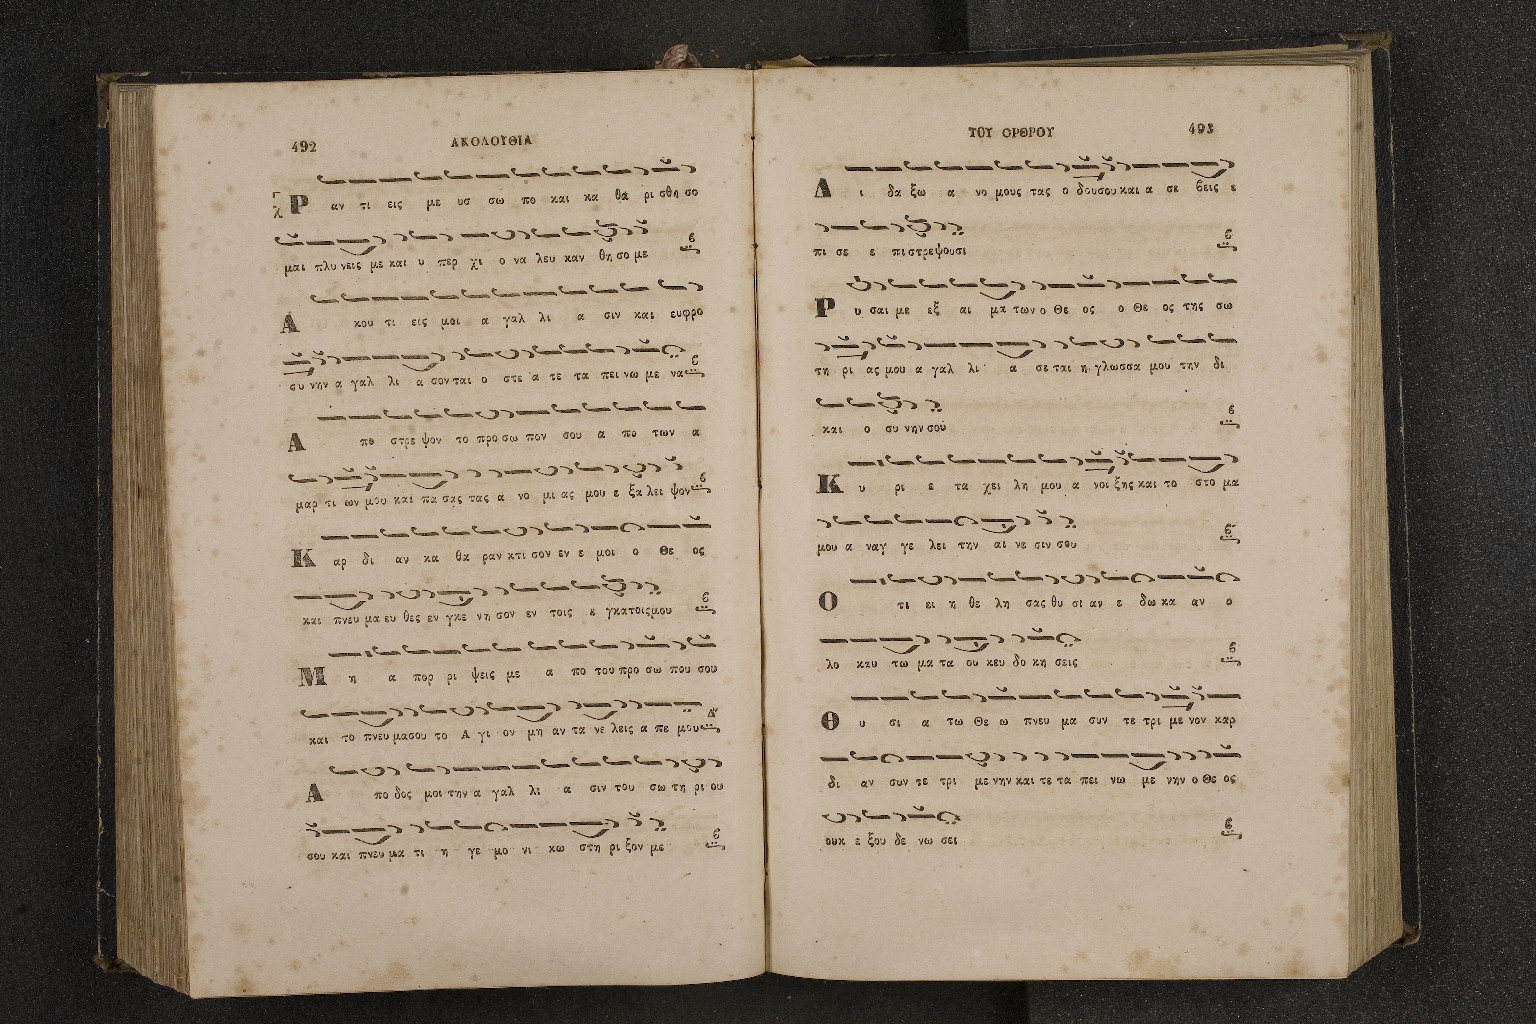 492 ΑΚΟΛΟΥΘΙΑ
Ραν τι εις με υσ σω πο και κα θα ρι σθη σο
μαι πλυ νεις με και υ περ χι ο να λευ καν θη σο με
Α κου τι εις μοι α γαλ λι α σιν και ευφρο
συ νην α γαλ λι α σον ται ο στε α τε τα πει νω με να
Α πο στρε ψον το προ σω πον σου α πο των α
μαρ τι ων μου και πα σας τας α νο μι ας μου ε ξα λει ψον
Καρ δι αν κα θα ραν κτι σον εν ε μοι ο Θε ος
και πνευ μα ευ θες εν γκε νη σον εν τοις ε γκατοις μου
Μ η α πορ ρι ψεις με α πο του προ σω που σου
και το πνευ μα σου το Α γι ον μη αν τα νε λεις α πε μου
Α πο δος μοι την α γαλ λι α σιν του σω τη ρι ου
σου και πνευ μα τι η γε μο νι κω στη ρι ξον με
ΤΟΥ ΟΡΘΡΟΥ 493
Δ ι δα ξω α νο μους τας ο δους σου και α σε βεις ε
πι σε ε πι στρεψουσι
Ρ υ σαι με εξ αι μα των ο Θε ος ο Θε ος της σω
τη ρι ας μου α γαλ λι α σε ται η γλωσσα μου την δι
και ο συ νην σου
Κ υ ρι ε τα χει λη μου α νοι ξης και το στο μα
μου α ναγ γε λει την αι νε σιν σου
Ο τι ει η θε λη σας θυ σι αν ε δω κα αν ο
λο καυ τω μα τα ου κευ δο κη σεις
Θ υ σι α τω Θε ω πνευ μα συν τε τρι με νον καρ
δι αν συν τε τρι με νην και τε τα πει νω με νην ο Θε ος
ουκ ε ξου δε νω σει